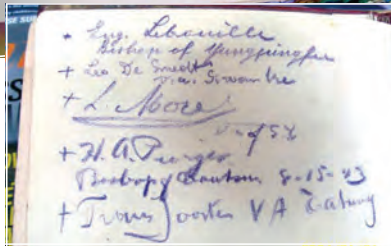 + Eug. Lebouille
Bishop of Yungpingfu
+ Leo De Smedt
v.a. Siwantze
+ L. Morel
+ H. A. Pinger
Bishop of 8-15-43
+ Frans Joosten VA Tatung